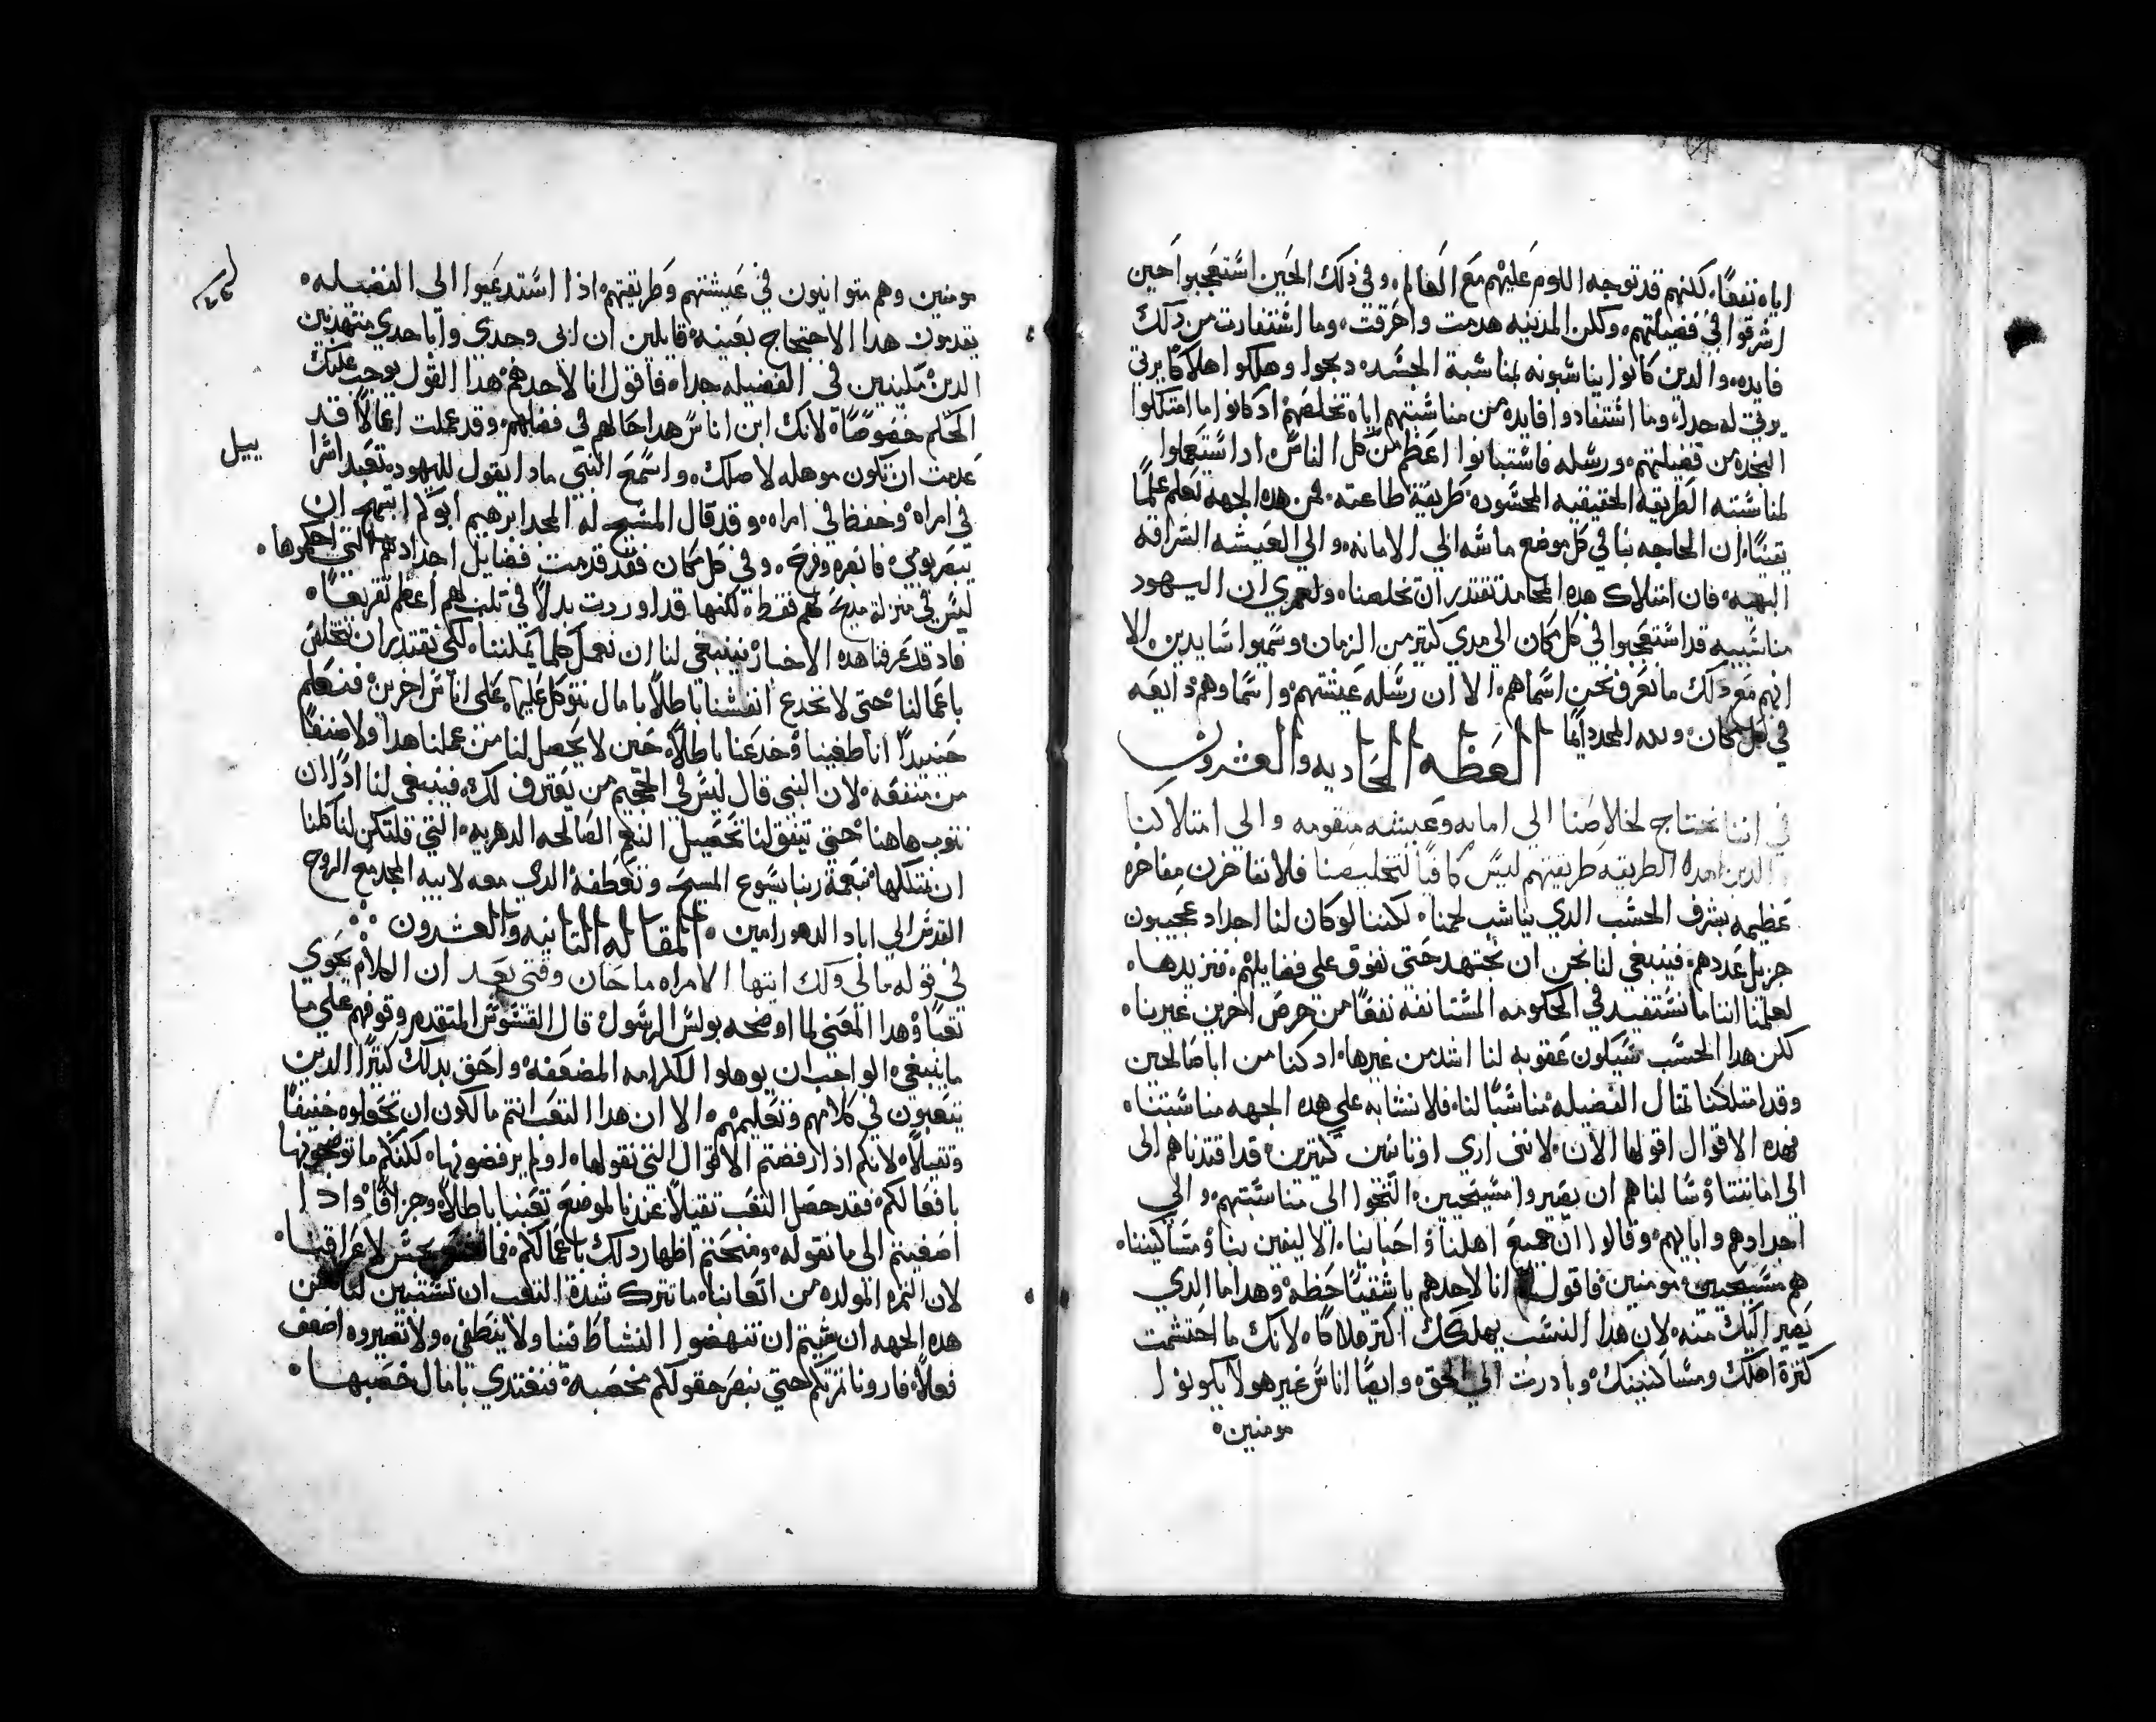 اياه نفعًا، لكنهم قد توجه اللوم عليهم مع العالم، وفي ذلك الحين استعجبوا حين
اشرقوا في فضيلتهم، ولكن المدينه هدمت واحرقت، وما استفادت من ذلك
فايده، والدين كانوا يناسبونه بمناسبة الجسد، دبحوا وهلكوا اهلاكًا يرتي
يرتي له جدا، وما استفادوا فايده من مناسبتهم اياه تخلصهم اد كانوا ما امتلكوا
النجده من فضيلتهم، ورسله فاستبانوا اعظم من كل الناس اد استعملوا
لمناسبته الطريقه الحقيقيه المحسوده طريقة طاعته، فمن هده الجهه نعلم علمًا
يقينًا، ان الحاجه بنا في كل موضع ماسه الي الامانه، والي العيشه الشراقه
البهيه، فان امتلاك هده المحامد تقتدر ان تخلصنا، ولعمري ان اليهود
مناسبيه قد استعجبوا في كل مكان الي مدي كتير من الزمان وسميوا سايدين، الا
انهم مع دلك ما نعرف نحن اسماهم، الا ان رسله عيشتهم، واسماوهم دايعه
في كل مكان، ولله المجد دايمًا
العظه الحاديه والعشرون
في اننا نحتاج لخلاصنا الي امانه وعيشه متقومه والي امتلاكنا
الدين هده الطريقه طريقتهم ليس كافيًا لتخليصنا فلا نفاخرن مفاخره
عظيمه بشرف الحسب الدي يناسب لحمنا، لكننا لو كان لنا اجداد عجيبون
جزيل عددهم، فينبغي لنا نحن ان نجتهد حتي نفوق علي فضايلهم، فنزيدها،
لعلمنا اننا ما نستفيد في الحكومه المستانفه نفعًا من حرص اخرين غيرنا،
لكن هدا الحسب سيكون عقوبه لنا اشد من غيرها، اد كنا من ابا صالحين
وقد امتلكنا تمتال الفضيله مناسبًا لنا، فلا نشابه علي هده الجهه مناسبتنا،
فهده الاقوال اقولها الان، لانني اري اوتانيين كتيرين، قد اقتدناهم الي
الي امانتنا، وسالناهم ان يصيروا مسيحيين، التجوا الي مناسبتهم، والي
اجدادهم وابايهم، وقالوا ان جميع اهلنا، واحبابنا، الاليفين بنا، ومساكيننا،
هم مسيحيين مومنين، فاقول انا لاحدهم يا شقيًا حظه، وهدا ما الدي
يصير اليك منه، لان هدا النسب يهلكك اكتر هلاكًا، لانك ما احتشمت
كترة اهلك ومساكنينك، وبادرت الي الحق، وايضًا اناس غير هولا يكونوا
مومنين،
مومنين وهم متوانيون في عيشتهم وطريقتهم، ادا استدعيوا الي الفضيله،
يقدمون هدا الاحتجاج بعينه، قايلين ان ابي وجدي وابا جدي متهدبين
الدين مليئين في الفضيله جدا، فاقول انا لاحدهم هدا القول يوجب عليك
الحكم خصوصًا، لانك ابن اناس هدا حالهم في فضلهم، وقد عملت اعمالًا قد
عدمت ان تكون موهله لاصلك، واسمع النبي مادا يقول لليهود، تعبد اسراييل
في امراه، وحفظ في امراه، وقد قال المسيح له المجد ابرهيم ابوكم ابتهج ان
يبصر يومي، فابصره وفرح، وفي كل مكان فقد قدمت فضايل اجدادهم التي احكموها،
ليس في منزلة مديح لهم فقط، لكنها قد اوردت بدلًا في تلب لهم اعظم تقريعًا،
فاد قد عرفنا هده الاخبار، ينبغي لنا ان نعمل كلما يمكننا، لكي نقتدر ان نتخلص
باعمالنا، حتي لا نخدع انفسنا باطلًا بامال نتوكل عليها، علي اناس اخرين، فنعلم
حنيدًا انا طغينا، وخدعنا باطلًا، حين لا يحصل لنا من عملنا هدا ولا صنفًا
من منفعه، لان النبي قال ليس في الجحيم من يعترف لك، فينبغي لنا ادًا ان
نتوب هاهنا، حتي يتفق لنا تحصيل النعم الصالحه الدهريه، التي فلتكن لنا كلنا
ان نمتلكها بنعمة ربنا يسوع المسيح وتعطفه الدي معه لابيه المجد مع الروح
القدس الي اباد الدهور امين، المقاله التانيه والعشرون
في قوله مالي ولك ايتها الامراه ما حان وقتي بعد ان الكلام يحوي
تعبًا، وهدا المعني لما اوضحه بولس الرسول، قال القسوس المتقدم وقوفهم علي ما
ما ينبغي، الواجب ان يوهلوا للكرامه المضعفه، واحق بدلك كتيرًا الدين
يتعبون في كلامهم وتعليمهم، الا ان هدا التعب انتم مالكون ان تجعلوه خفيفًا
وتقيلًا، لانكم ادا رفضتم الاقوال التي نقولها، اولم يرفضونها، لكنكم ما توضحونها
بافعالكم، فقد حصل التعب تقيلًا عندنا لموضع تعبنا باطلًا، وجزافًا، وادا
اصغيتم الي ما نقوله، ومنحتم اظهار دلك باعمالكم، فما نحس لا عراقنا،
لان التمره المولده من اتعابنا، ما تترك شدة التعب ان تستبين لنا، فمن
هده الجهه ان شيتم ان تنهضوا النشاط فينا ولا ينطفي، ولا تصيروه اضعف
فعلًا، فارونا تمرتكم، حتي نبصر حقولكم مخصبه، فنغتدي بامال خصبها،